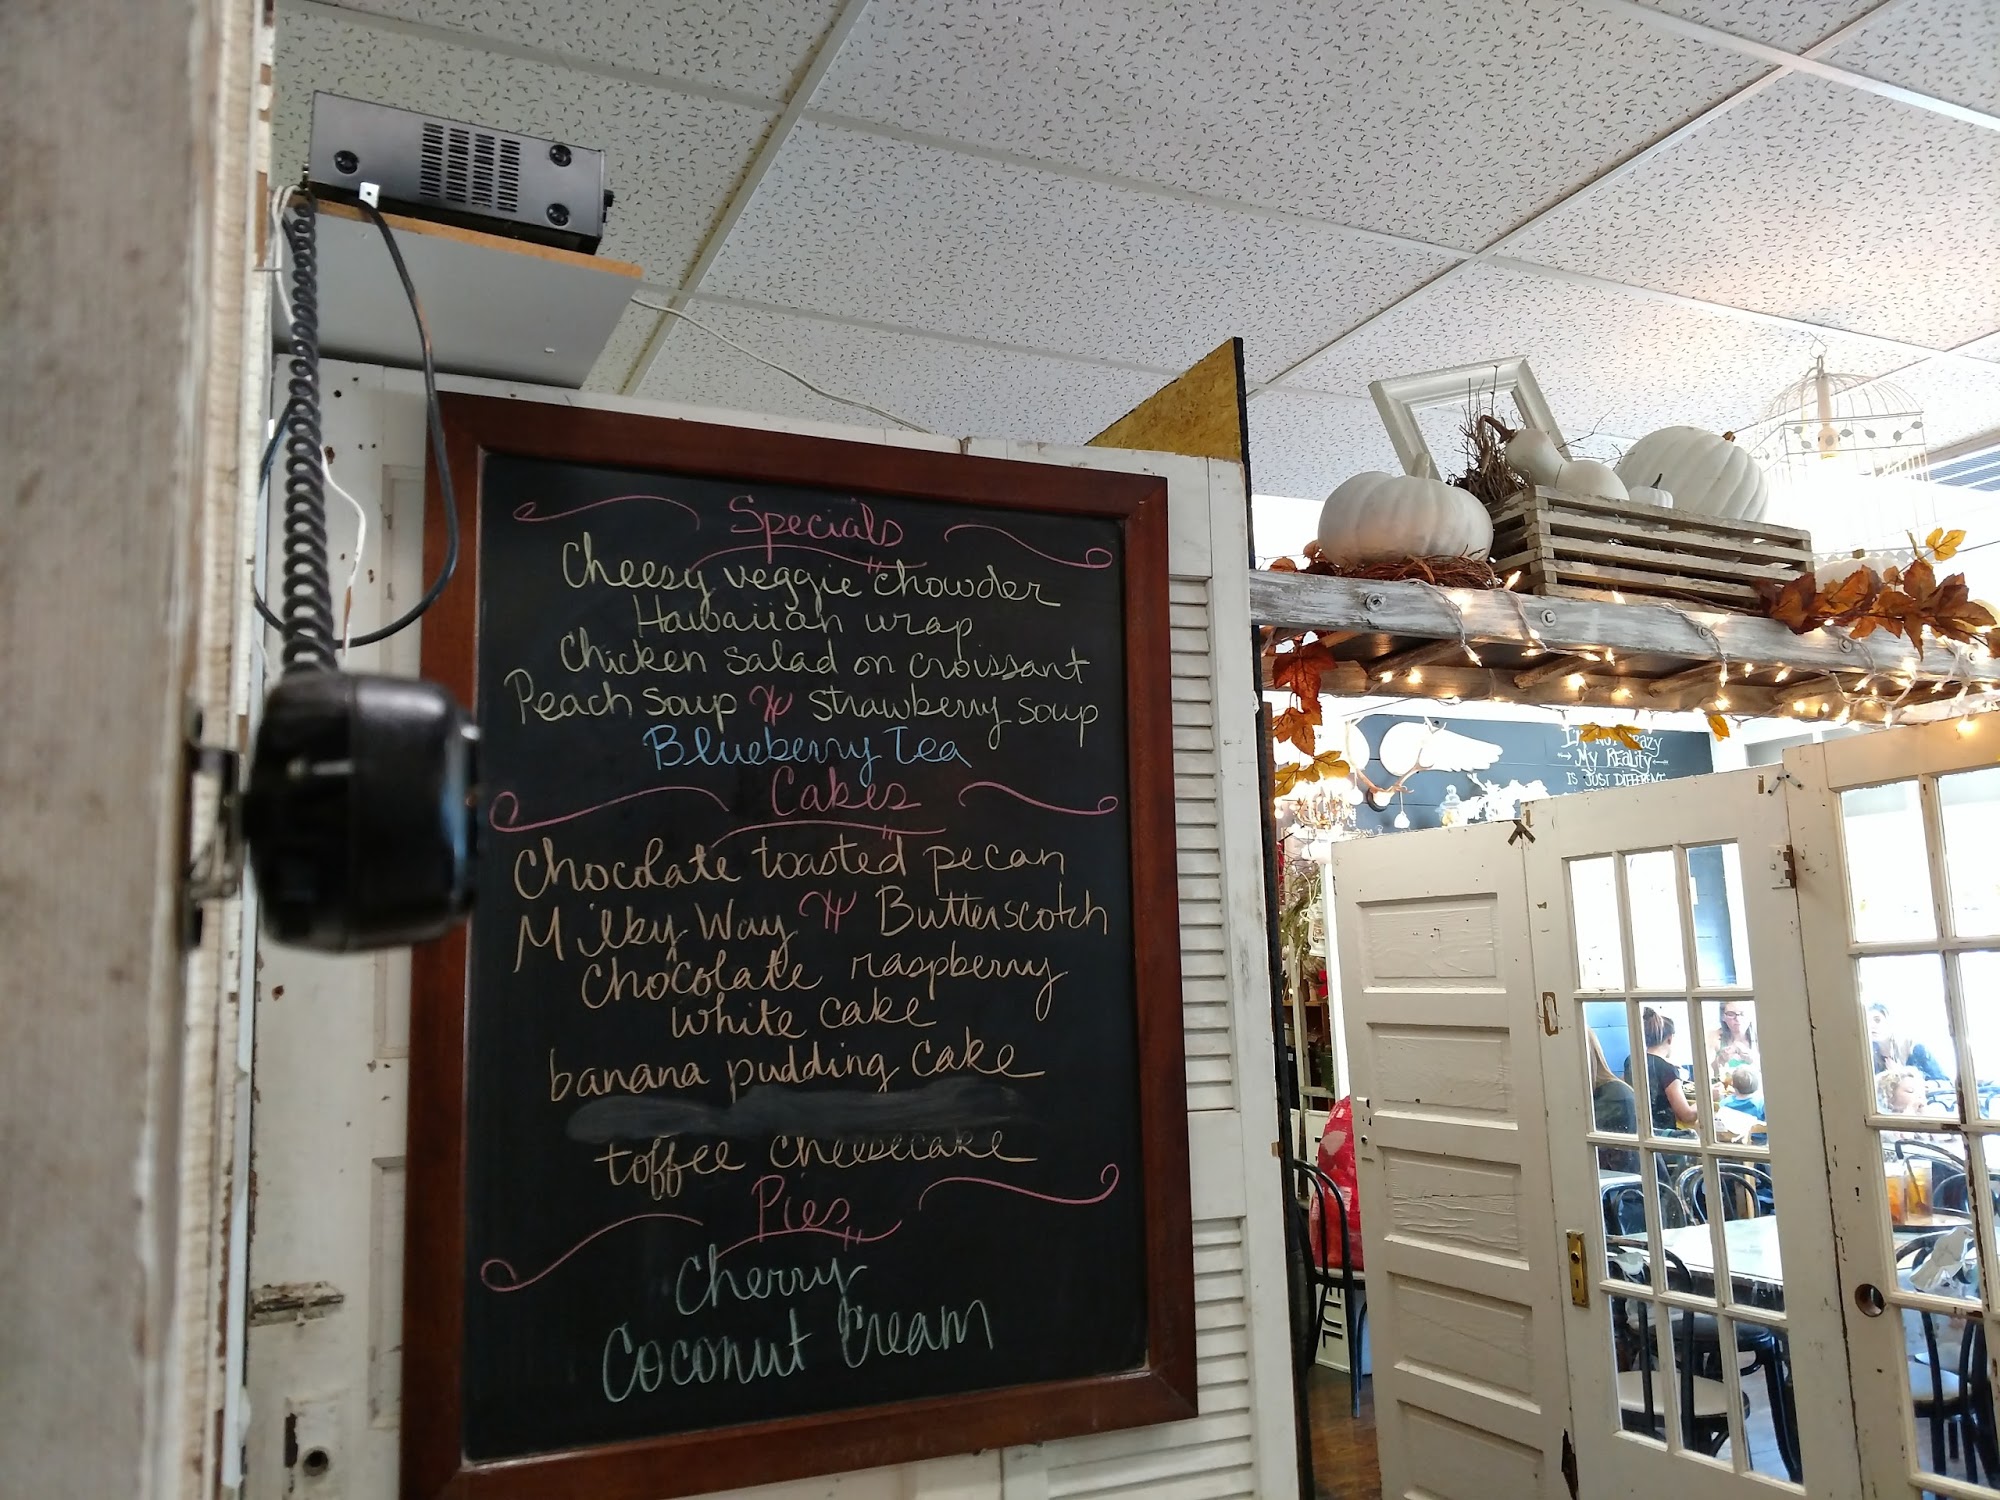 Specials
Cheesy veggie chowder
Hawaiian wrap
Chicken salad on croissant
Peach soup strawberry soup
Blueberry Tea
Cakes
Chocolate toasted pecan
Milky Way Butterscotch
Chocolate raspberry
white cake
banana pudding cake
toffee cheesecake
Pies
Cherry
Coconut Cream
I'm Not Crazy
My Reality
is Just Different